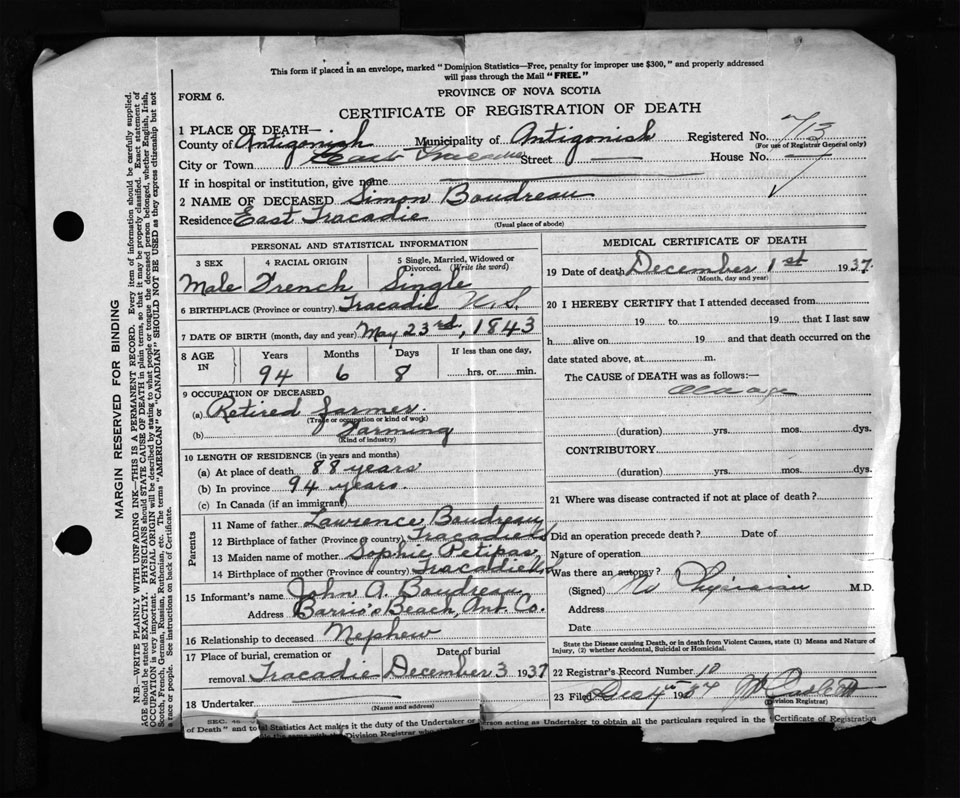 This form if placed in an envelope, marked "Dominion Statistics—Free, penalty for improper use $300," and properly addressed
will pass through the Mail "FREE."
FORM 6.
PROVINCE OF NOVA SCOTIA
CERTIFICATE OF REGISTRATION OF DEATH
1 PLACE OF DEATH—
County of Antigonish Municipality of Antigonish Registered No. 713
(For use of Registrar General only)
City or Town East Tracadie Street — House No. —
If in hospital or institution, give name
2 NAME OF DECEASED Simon Boudreau
Residence East Tracadie
(Usual place of abode)
PERSONAL AND STATISTICAL INFORMATION
3 SEX 4 RACIAL ORIGIN 5 Single, Married, Widowed or Divorced. (Write the word)
Male French Single
6 BIRTHPLACE (Province or country) Tracadie N.S.
7 DATE OF BIRTH (month, day and year) May 23rd, 1843
8 AGE IN Years Months Days If less than one day,
94 6 8 hrs. or min.
9 OCCUPATION OF DECEASED
(a) Retired farmer.
(Trade or occupation or kind of work)
(b) Farming
(Kind of industry)
10 LENGTH OF RESIDENCE (in years and months)
(a) At place of death 88 years
(b) In province 94 years.
(c) In Canada (if an immigrant)
Parents
11 Name of father Lawrence Boudreau
12 Birthplace of father (Province or country) Tracadie N.S
13 Maiden name of mother Sophie Petipas
14 Birthplace of mother (Province or country) Tracadie N.S
15 Informant's name John A. Boudreau
Address Barrio's Beach, Ant. Co.
16 Relationship to deceased Nephew
17 Place of burial, cremation or Date of burial
removal Tracadie December 3 1937
18 Undertaker
(Name and address)
MEDICAL CERTIFICATE OF DEATH
19 Date of death December 1st 1937.
(Month, day and year)
20 I HEREBY CERTIFY that I attended deceased from
19 to 19 that I last saw
h alive on 19 and that death occurred on the
date stated above, at m.
The CAUSE of DEATH was as follows:—
Old age
(duration) yrs. mos. dys.
CONTRIBUTORY
(duration) yrs. mos. dys.
21 Where was disease contracted if not at place of death?
Did an operation precede death? Date of
Nature of operation
Was there an autopsy?
(Signed) No Physician M.D.
Address
Date
State the Disease causing Death, or in death from Violent Causes, state (1) Means and Nature of
Injury, (2) whether Accidental, Suicidal or Homicidal.
22 Registrar's Record Number 10
23 Filed Dec 4th 1937
(Division Registrar)
SEC. 46
of Death" and to al Statistics Act makes it the duty of the Undertaker or person acting as Undertaker to obtain all the particulars required in the "Certificate of Registration
MARGIN RESERVED FOR BINDING
N.B.—WRITE PLAINLY WITH UNFADING INK—THIS IS A PERMANENT RECORD. Every item of information should be carefully supplied.
AGE should be stated EXACTLY. PHYSICIANS should STATE CAUSE OF DEATH in plain terms, so that it may be properly classified. Exact statement of
OCCUPATION is very important. RACIAL ORIGIN will be described by stating to what people or tongue the deceased person belonged, whether English, Irish,
Scotch, French, German, Russian, Ruthenian, etc. The terms "AMERICAN" or "CANADIAN" SHOULD NOT BE USED as they express citizenship but not
a race or people. See instructions on back of Certificate.